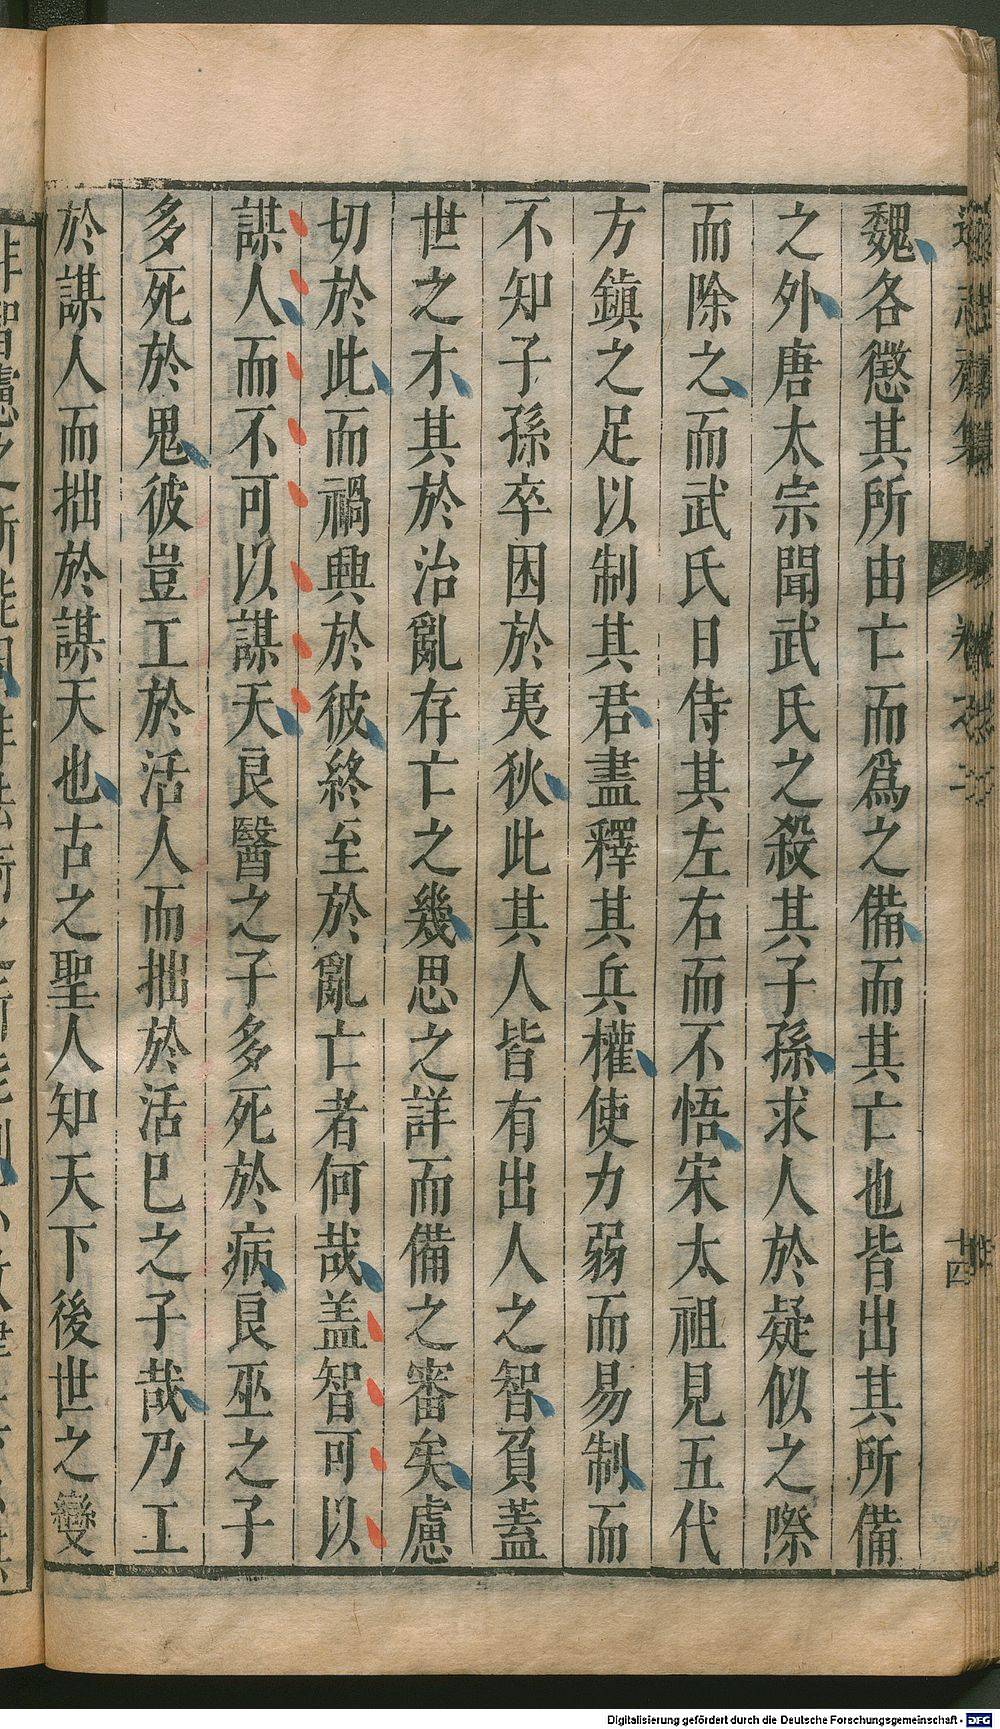 魏各懲其所由亡而爲之備而其亡也皆出其所備
之外唐太宗聞武氏之殺其子孫求人於疑似之際
而除之而武氏日侍其左右而不悟宋太祖見五代
方鎮之足以制其君盡釋其兵權使力弱而易制而
不知子孫卒困於夷狄此其人皆有出人之智負蓋
世之才其於治亂存亡之幾思之詳而備之審矣慮
切於此而禍興於彼終至於亂亡者何哉盖智可以
謀人而不可以謀天良醫之子多死於病良巫之子
多死於鬼彼豈工於活人而拙於活巳之子哉乃工
於謀人而拙於謀天也古之聖人知天下後世之變
十四
Digitalisierung gefördert durch die Deutsche Forschungsgemeinschaft - DFG